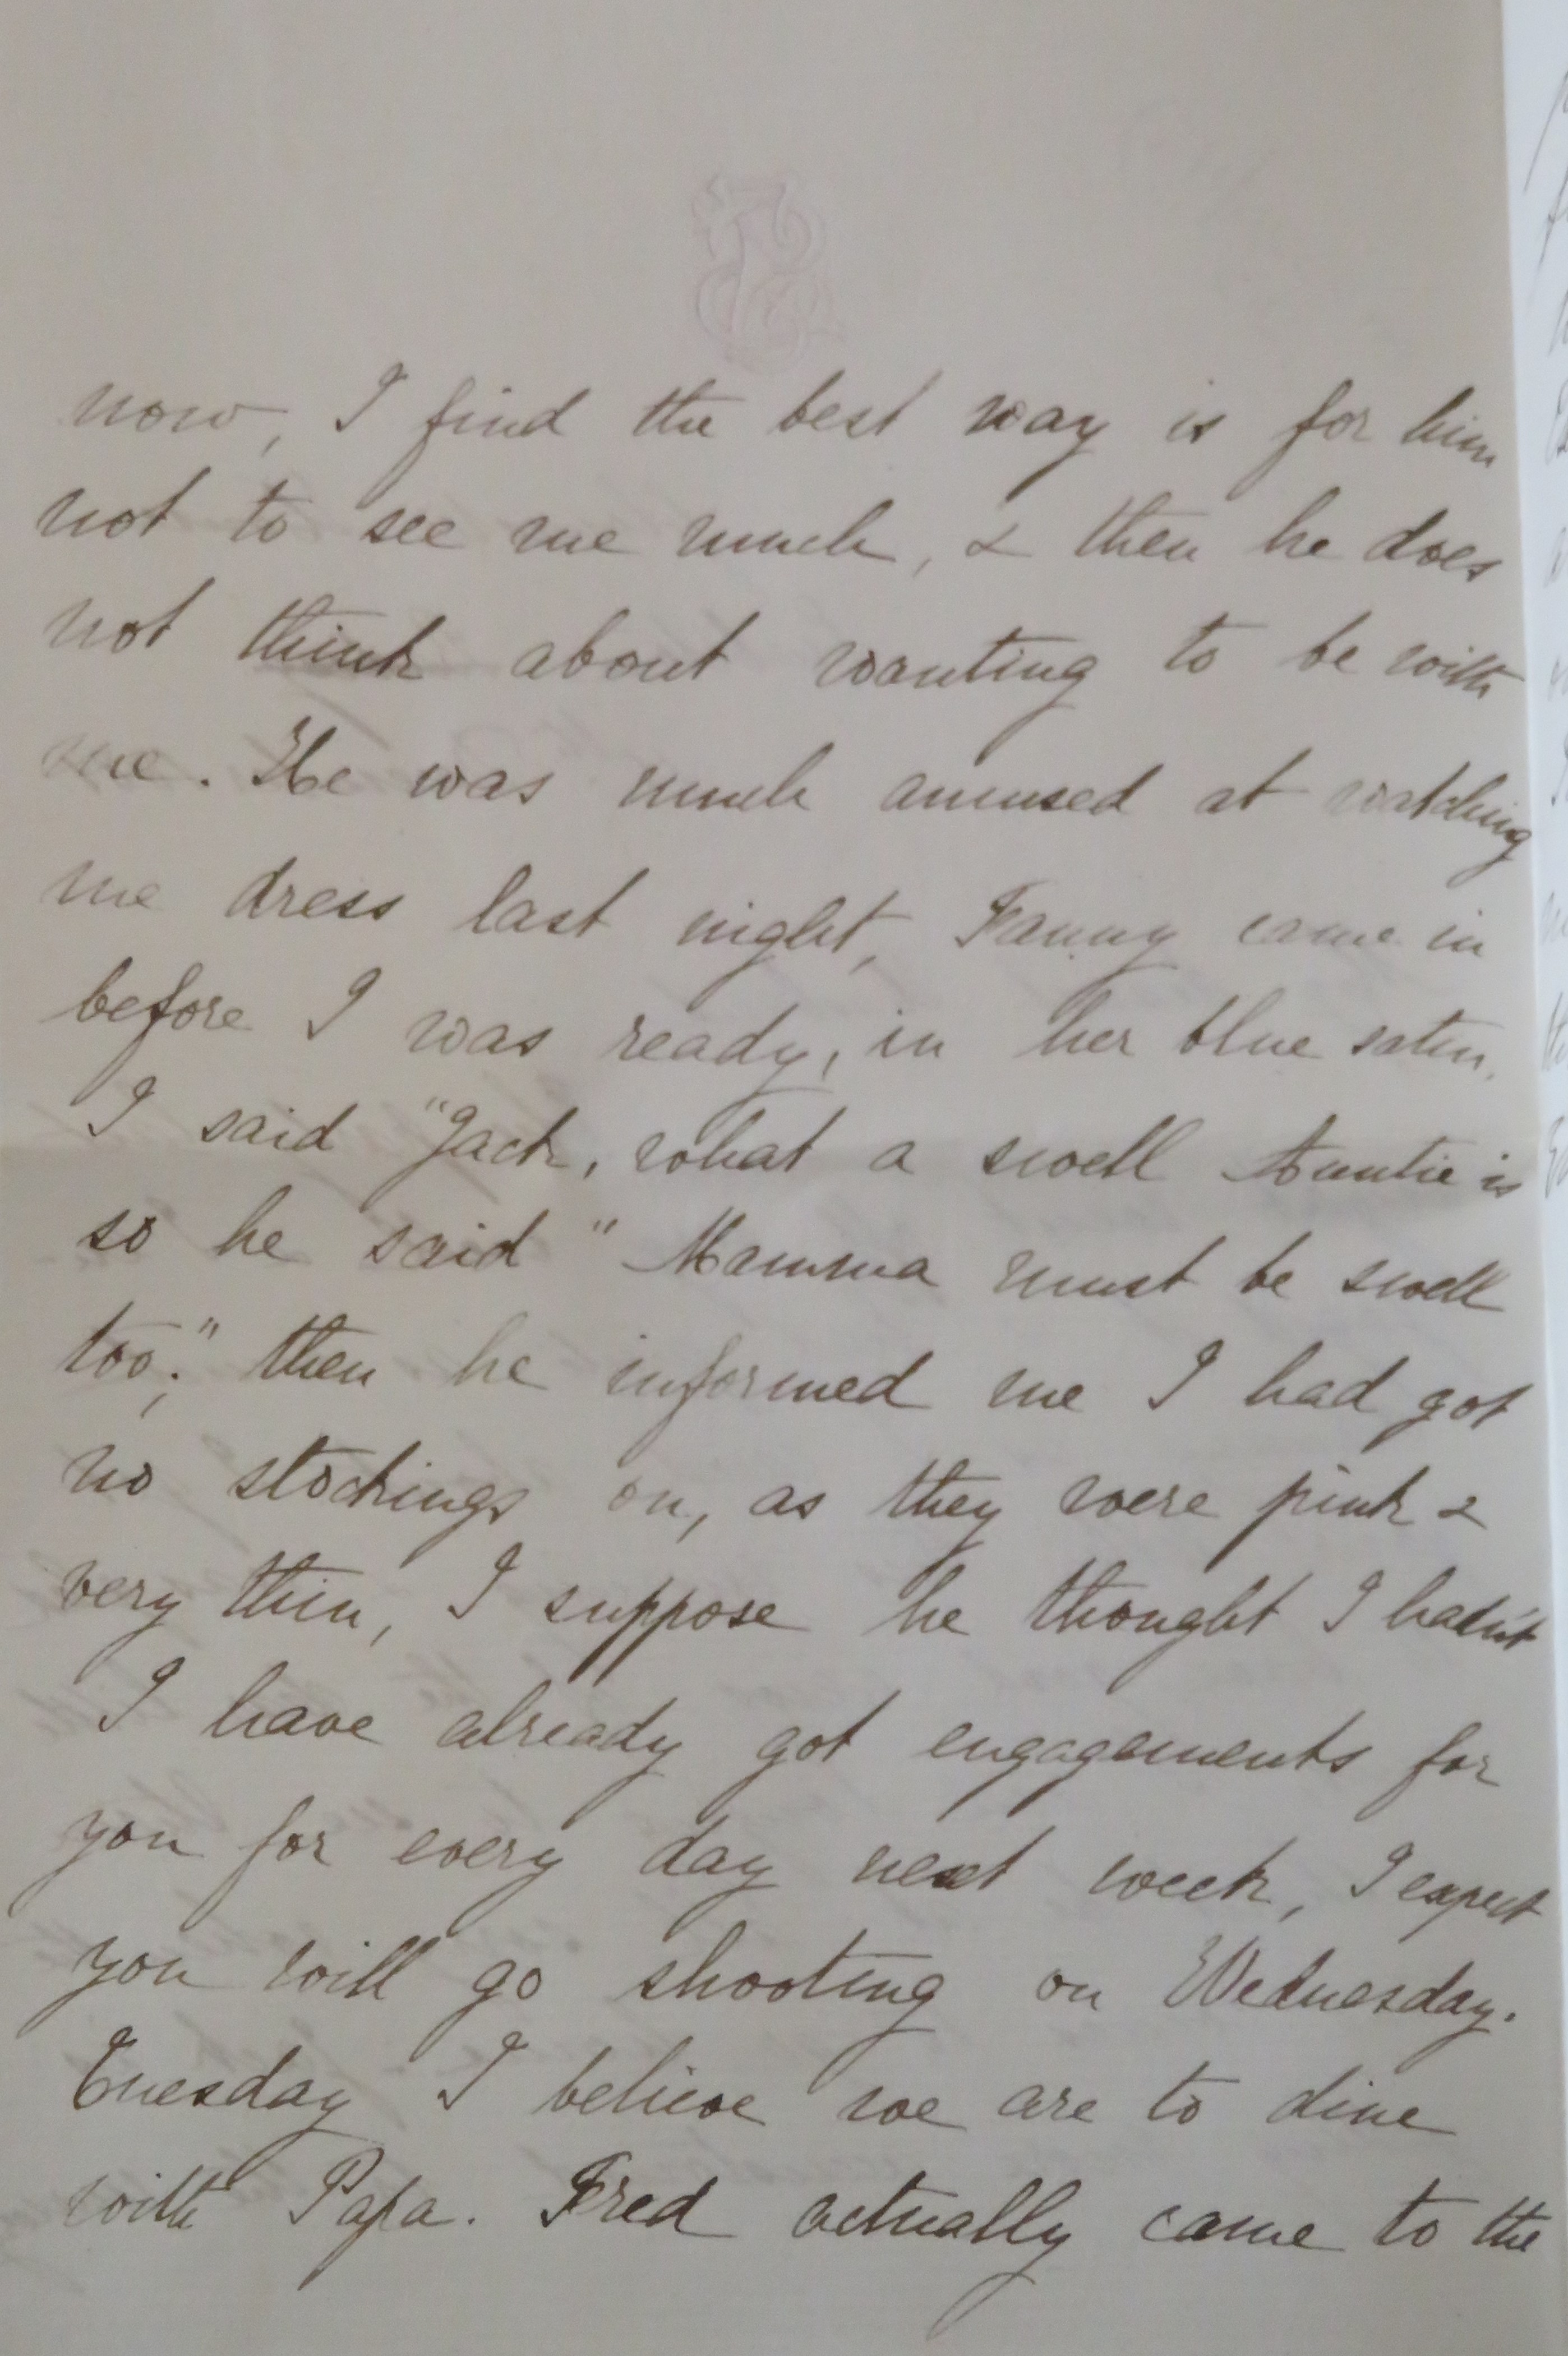 now, I find the best way is for him
not to see me much, & then he does
not think about wanting to be with
me. He was much amused at watching
me dress last night, Fanny came in
before I was ready, in her blue satin,
I said "Jack, what a swell Auntie is
so he said "Mamma must be swell
too;" then he informed me I had got
no stockings on, as they were pink &
very thin, I suppose he thought I hadn't
I have already got engagements for
you for every day next week, I expect
you will go shooting on Wednesday.
Tuesday I believe we are to dine
with Papa. Fred actually came to the